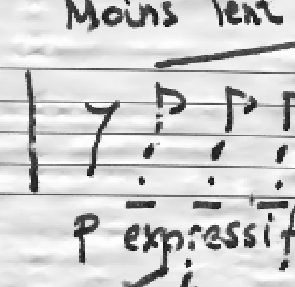 Moins lent
P expressif